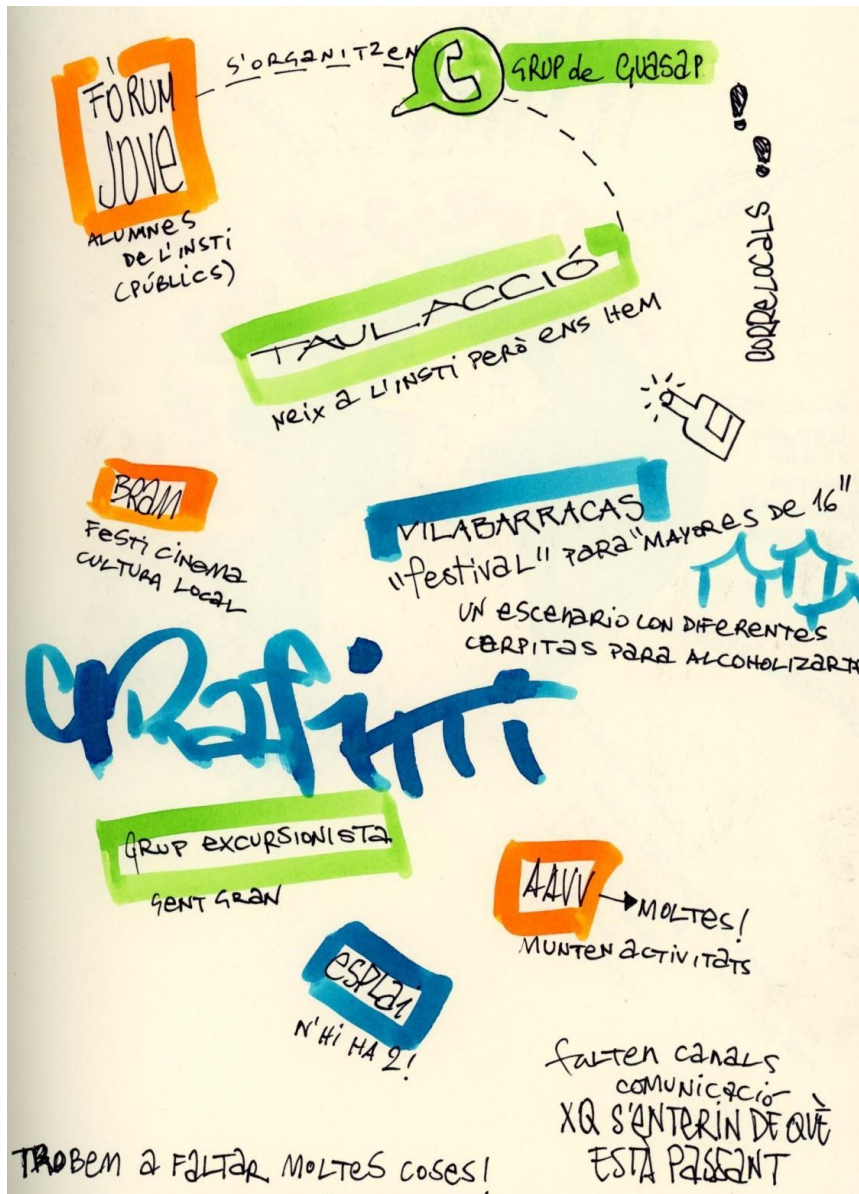 FÒRUM
JOVE
ALUMNES
DE L'INSTI
(PÚBLICS)
S'ORGANITZEN
GRUP de GUASAP
CORRELOCALS
TAULACCIÓ
NEIX A L'INSTI PERÒ ENS HEM
BRAM
FESTI CINEMA
CULTURA LOCAL
VILABARRACAS
"festival" PARA "MAYORES DE 16"
UN ESCENARIO CON DIFERENTES
CARPITAS PARA ALCOHOLIZARTE
GRafiTTi
GRUP EXCURSIONISTA
GENT GRAN
AAVV → MOLTES!
MUNTEN ACTIVITATS
esplai
N'HI HA 2!
falten canals
comunicació
XQ S'ENTERIN DE QUÈ
ESTÀ PASSANT
TROBEM A FALTAR MOLTES COSES!